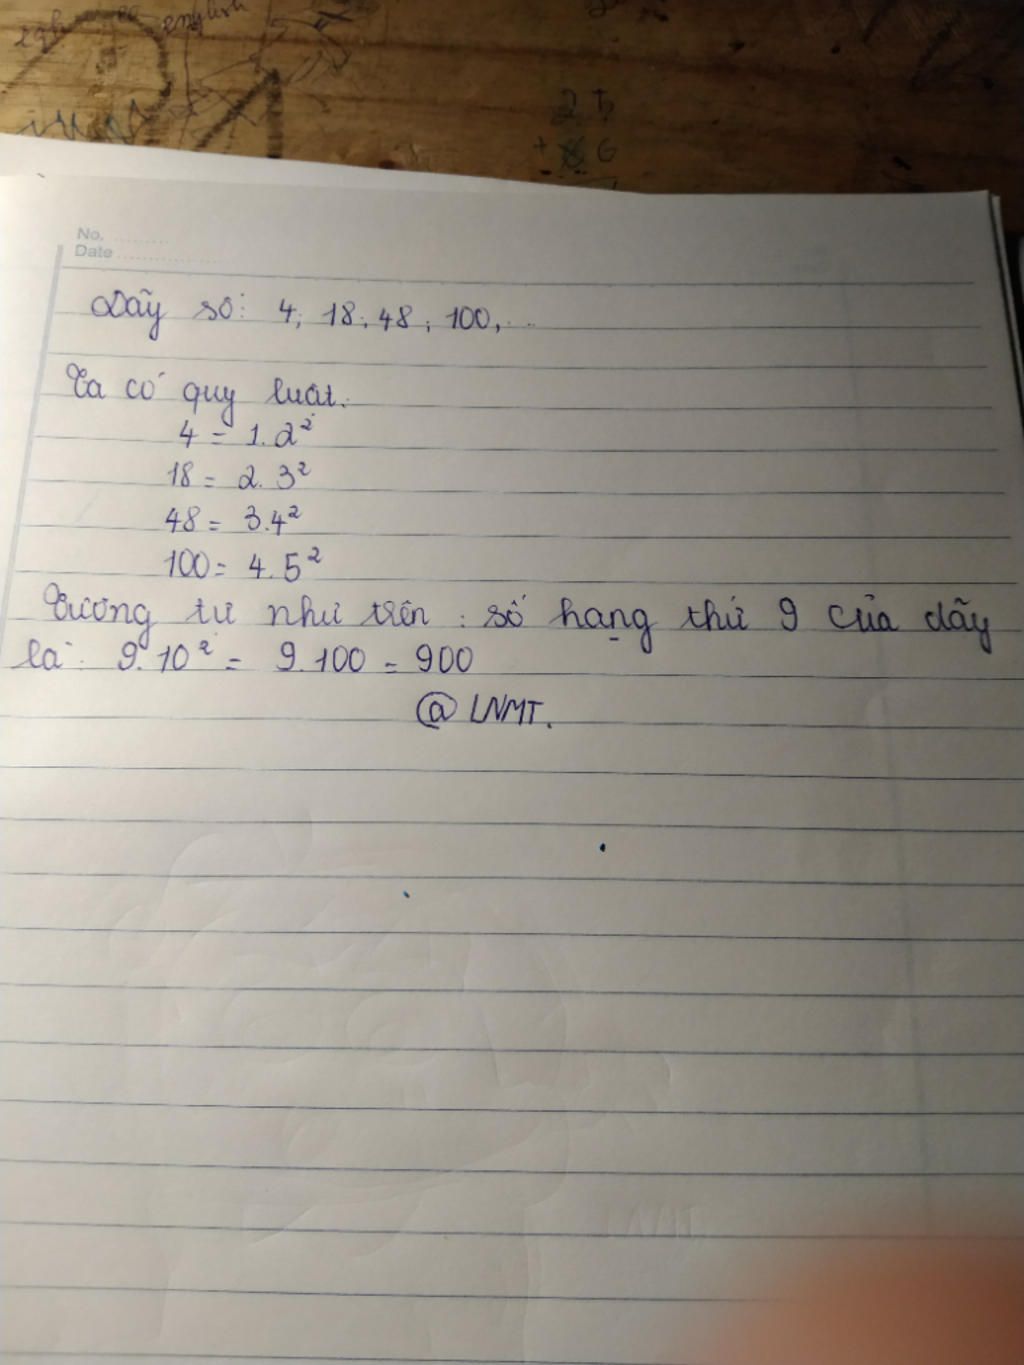 english
25
+ 6
No. ............
Date ..................
Dãy số: 4; 18; 48; 100, ...
Ta có quy luật.
4 = 1.2²
18 = 2.3²
48 = 3.4²
100 = 4.5²
Tương tự như trên : số hạng thứ 9 của dãy
là: 9.10² = 9.100 = 900
@ LNMT.